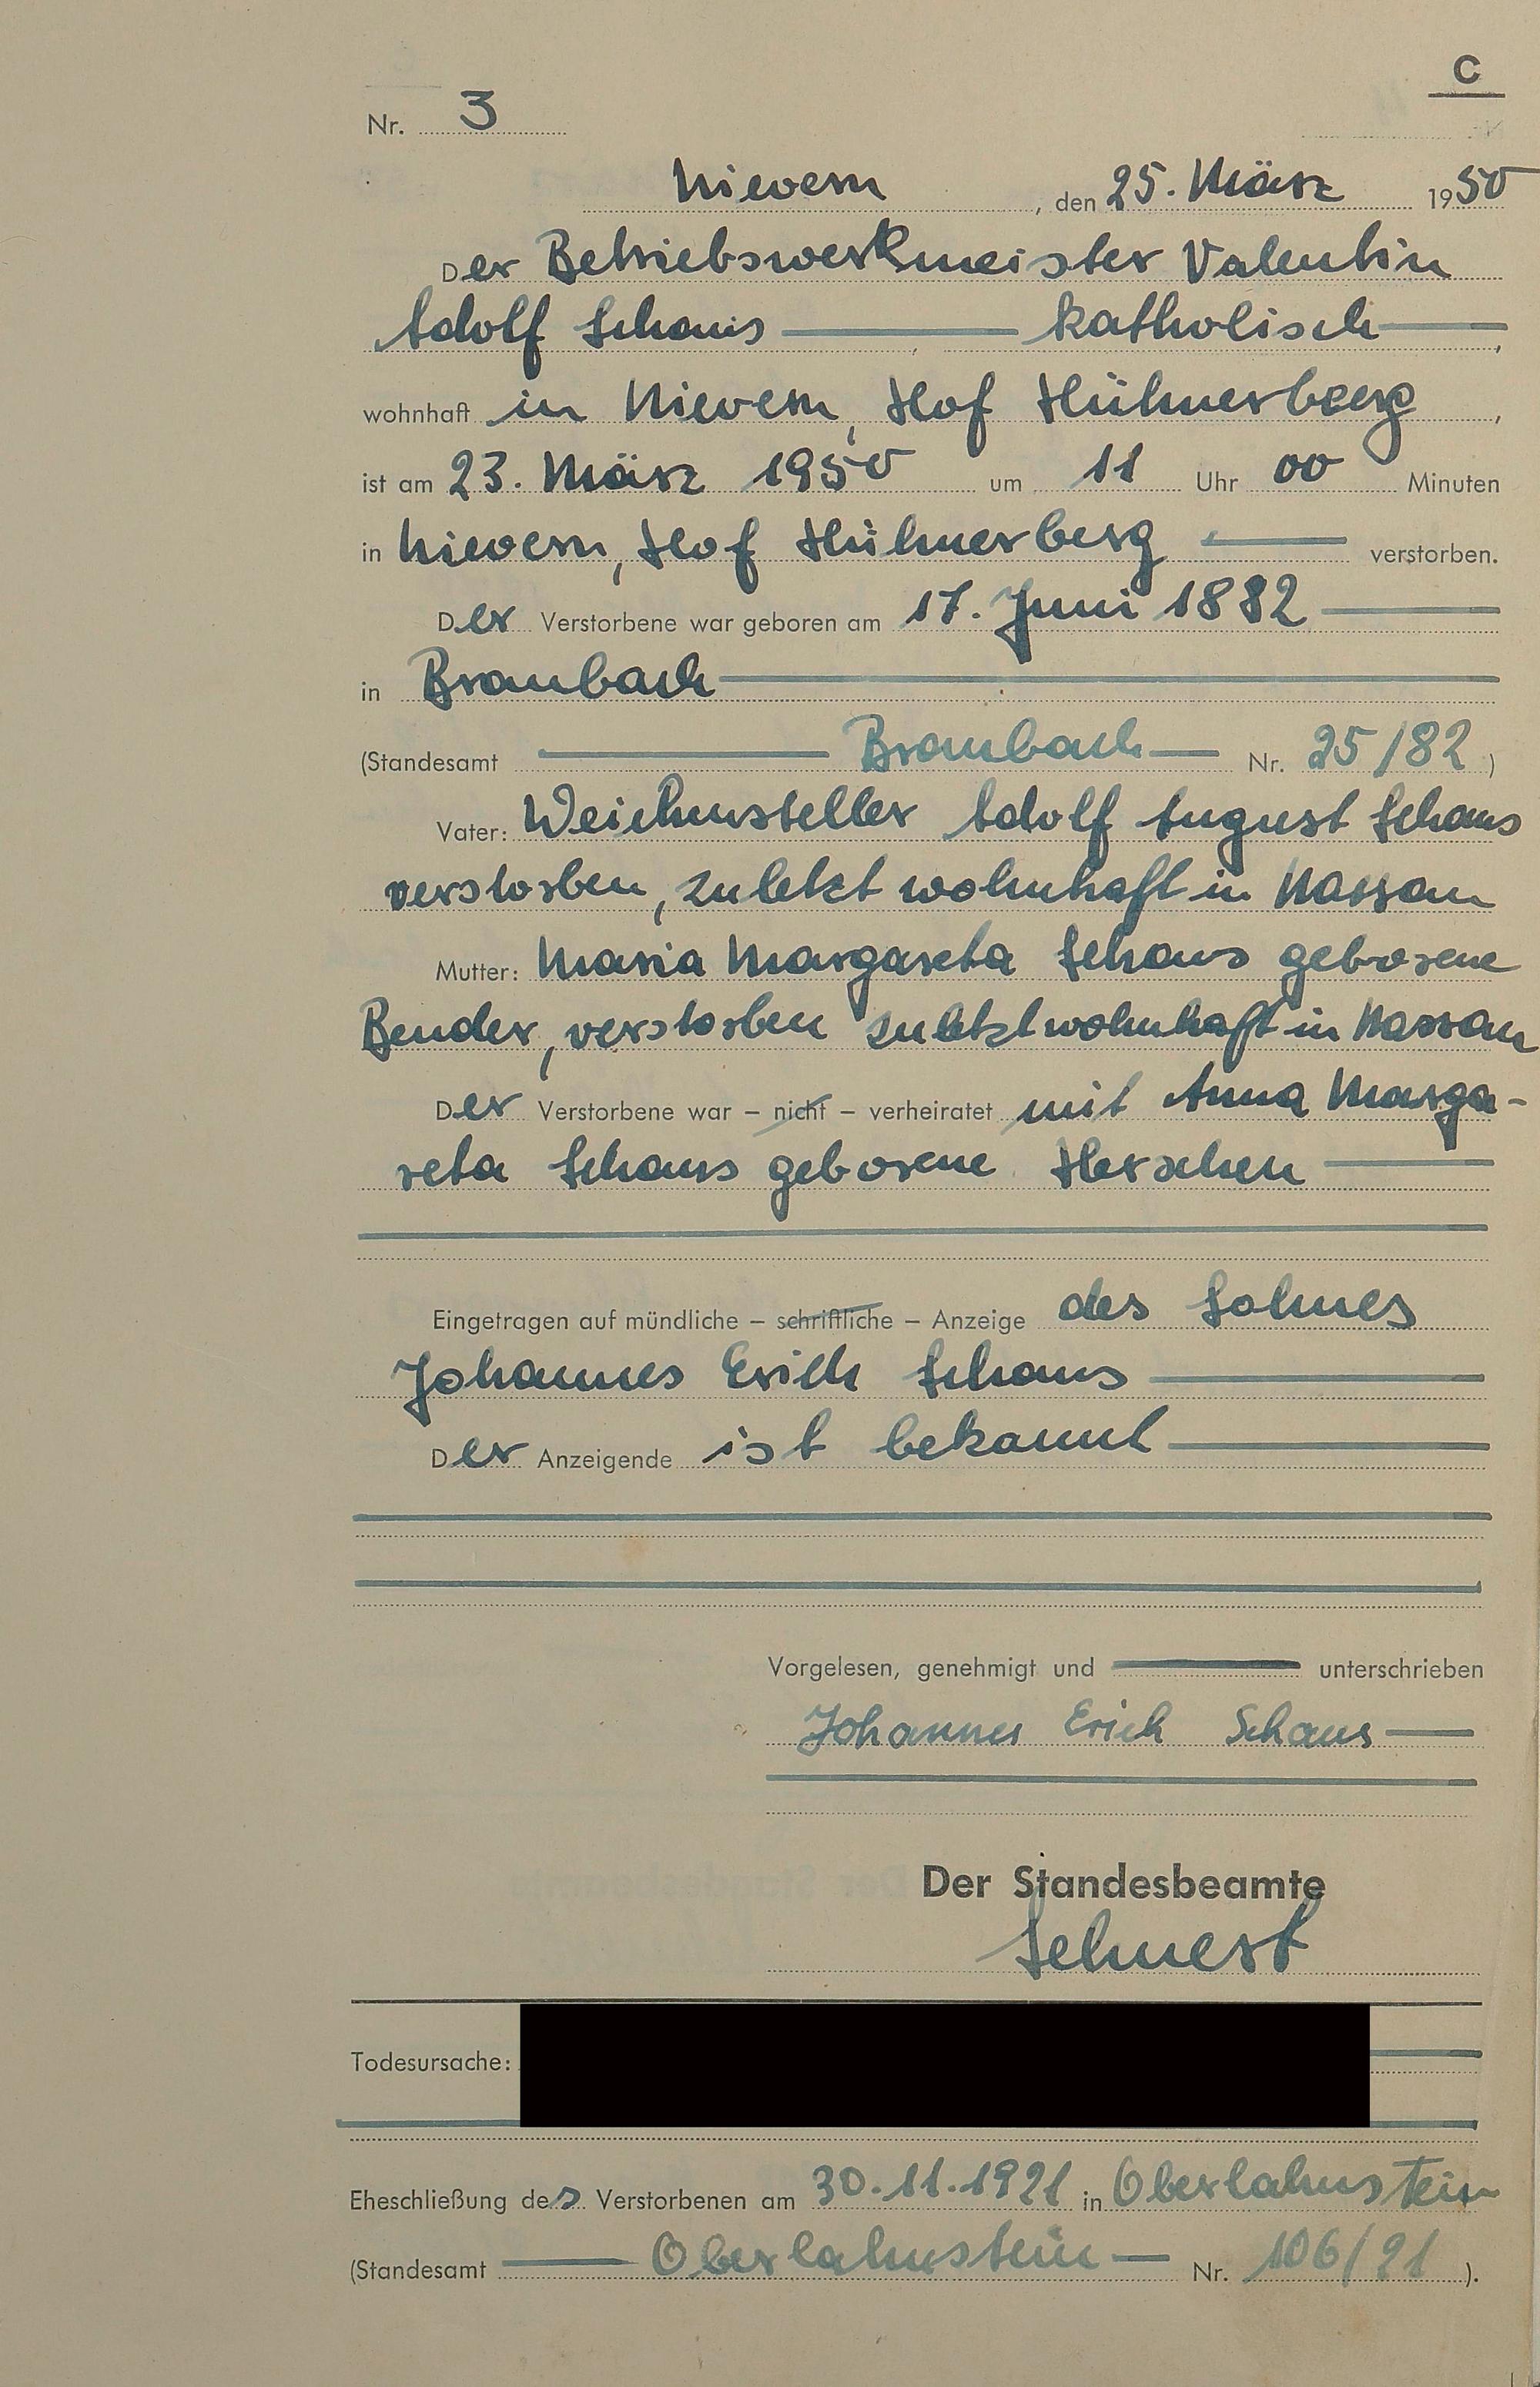 C
Nr. 3
Nievern, den 25. März 1950
Der Betriebswerkmeister Valentin
Adolf Schaus katholisch,
wohnhaft in Nievern, Hof Hühnerberg,
ist am 23. März 1950 um 11 Uhr 00 Minuten
in Nievern, Hof Hühnerberg verstorben.
Der Verstorbene war geboren am 17. Juni 1882
in Braubach
(Standesamt Braubach Nr. 25/82)
Vater: Weichensteller Adolf August Schaus
verstorben, zuletzt wohnhaft in Nassau
Mutter: Maria Margareta Schaus geborene
Bender, verstorben zuletzt wohnhaft in Nassau
Der Verstorbene war – nicht – verheiratet mit Anna Marga-
reta Schaus geborene Herschen
Eingetragen auf mündliche – schriftliche – Anzeige des Sohnes
Johannes Erich Schaus
Der Anzeigende ist bekannt
Vorgelesen, genehmigt und unterschrieben
Johannes Erich Schaus
Der Standesbeamte
Lehnert
Todesursache:
Eheschließung des Verstorbenen am 30.11.1921 in Oberlahnstein
(Standesamt Oberlahnstein Nr. 106/21).